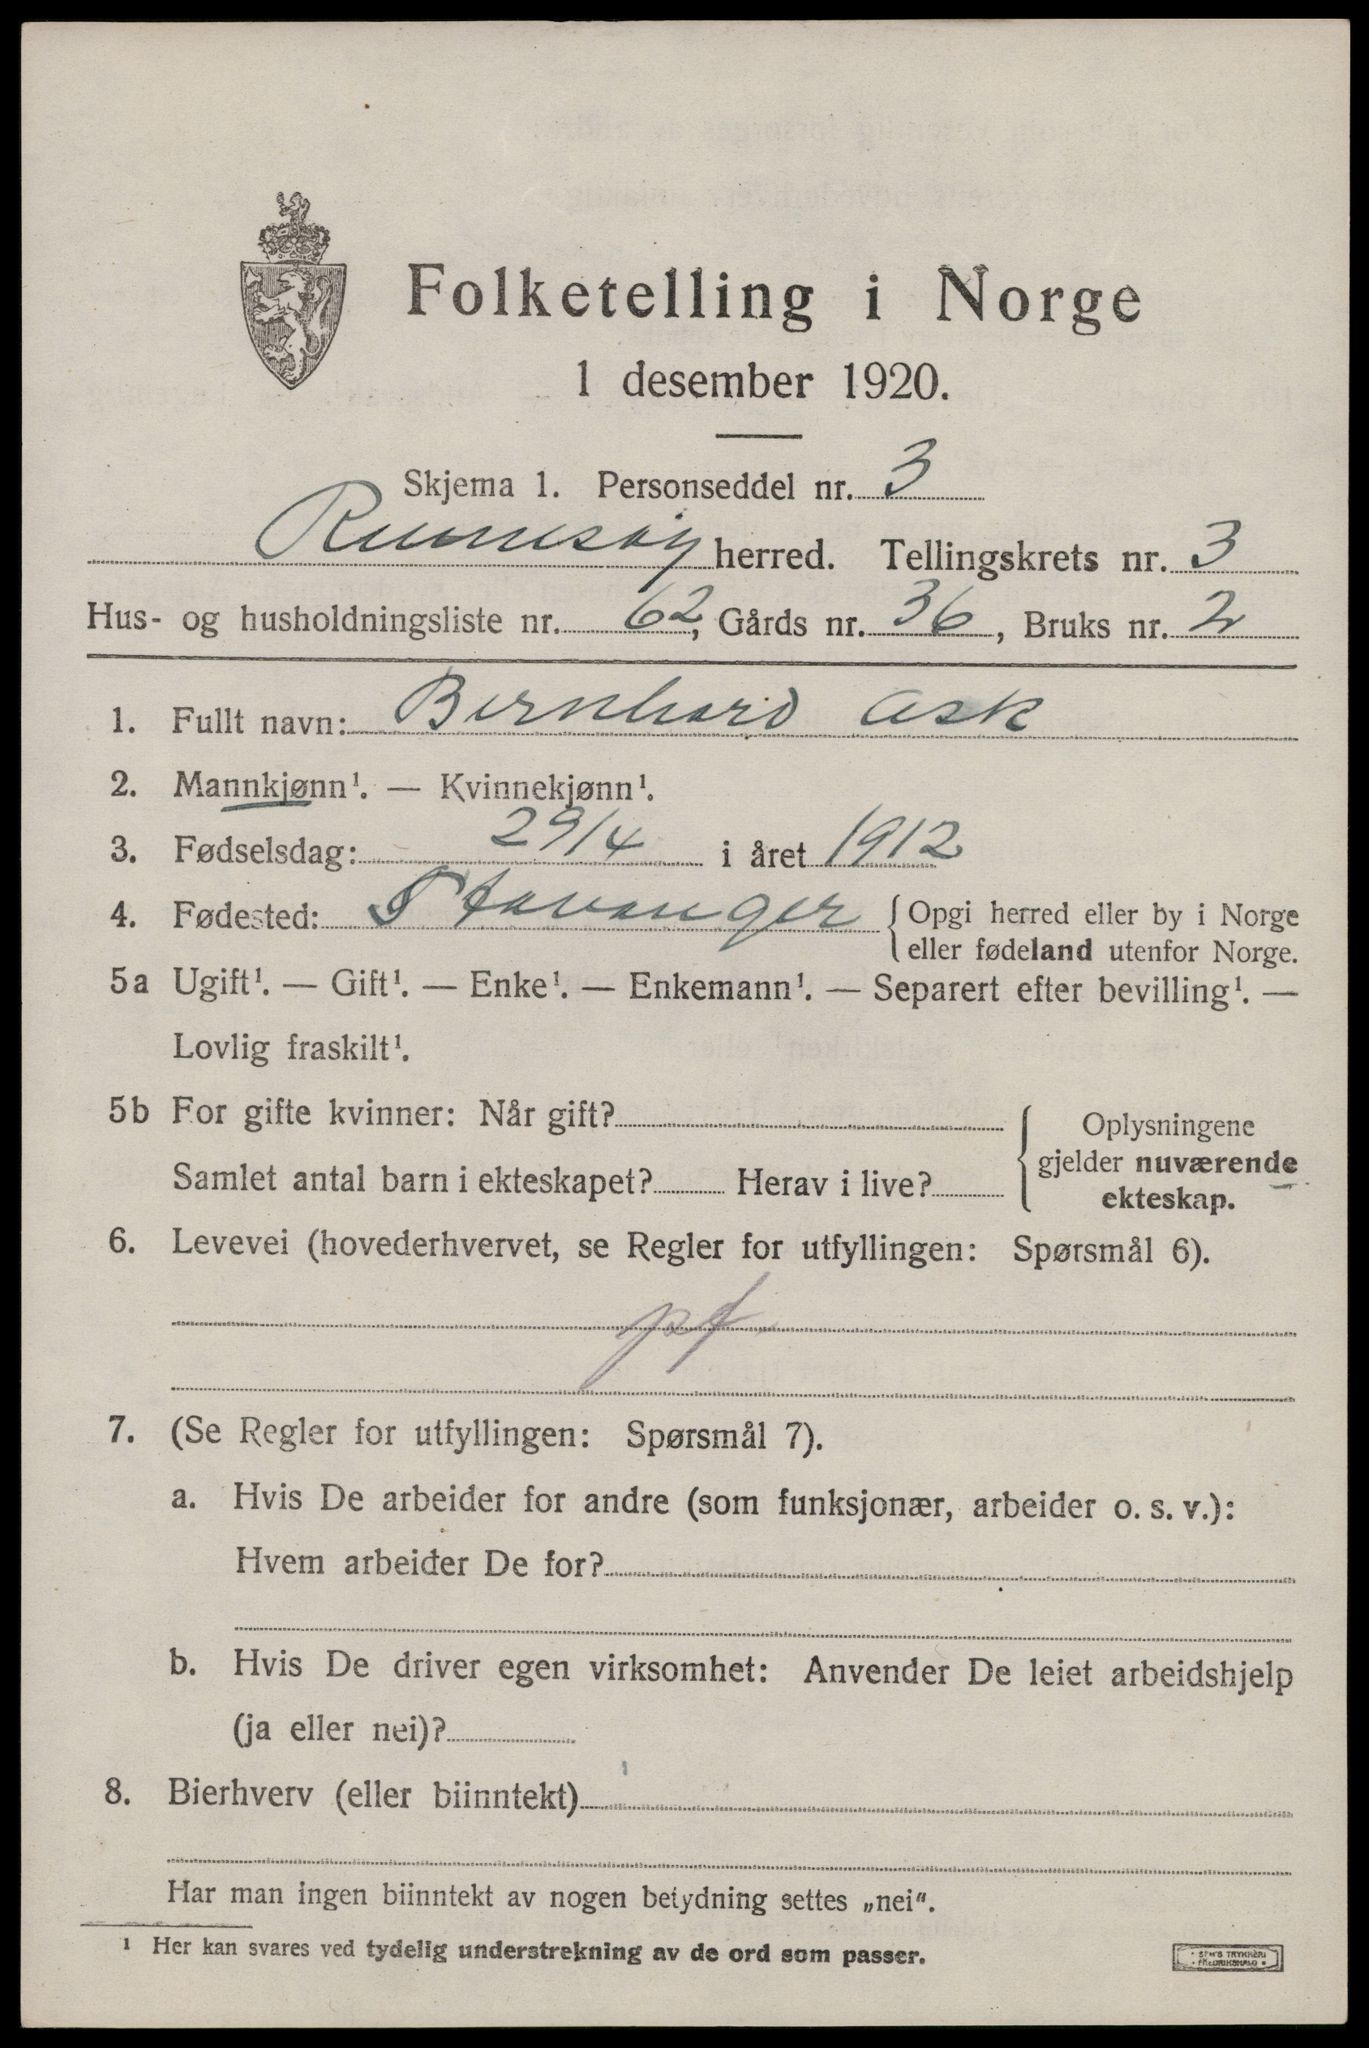 Folketelling i Norge
1 desember 1920.
Skjema 1. Personseddel nr. 3
Rennesøy herred. Tellingskrets nr. 3
Hus- og husholdningsliste nr. 62, Gårds nr. 36, Bruks nr. 2
1. Fullt navn: Bernhard Ask
2. Mannkjønn¹. — Kvinnekjønn¹.
3. Fødselsdag: 29/4 i året 1912
4. Fødested: Stavanger { Opgi herred eller by i Norge
eller fødeland utenfor Norge.
5a Ugift¹. — Gift¹. — Enke¹. — Enkemann¹. — Separert efter bevilling¹. —
Lovlig fraskilt¹.
5b For gifte kvinner: Når gift?
Samlet antal barn i ekteskapet? Herav i live?
{ Oplysningene
gjelder nuværende
ekteskap.
6. Levevei (hovederhvervet, se Regler for utfyllingen: Spørsmål 6).
7. (Se Regler for utfyllingen: Spørsmål 7).
a. Hvis De arbeider for andre (som funksjonær, arbeider o. s. v.):
Hvem arbeider De for?
b. Hvis De driver egen virksomhet: Anvender De leiet arbeidshjelp
(ja eller nei)?
8. Bierhverv (eller biinntekt)
Har man ingen biinntekt av nogen betydning settes „nei“.
¹ Her kan svares ved tydelig understrekning av de ord som passer.
TRYKKERI
FREDRIKSHALD